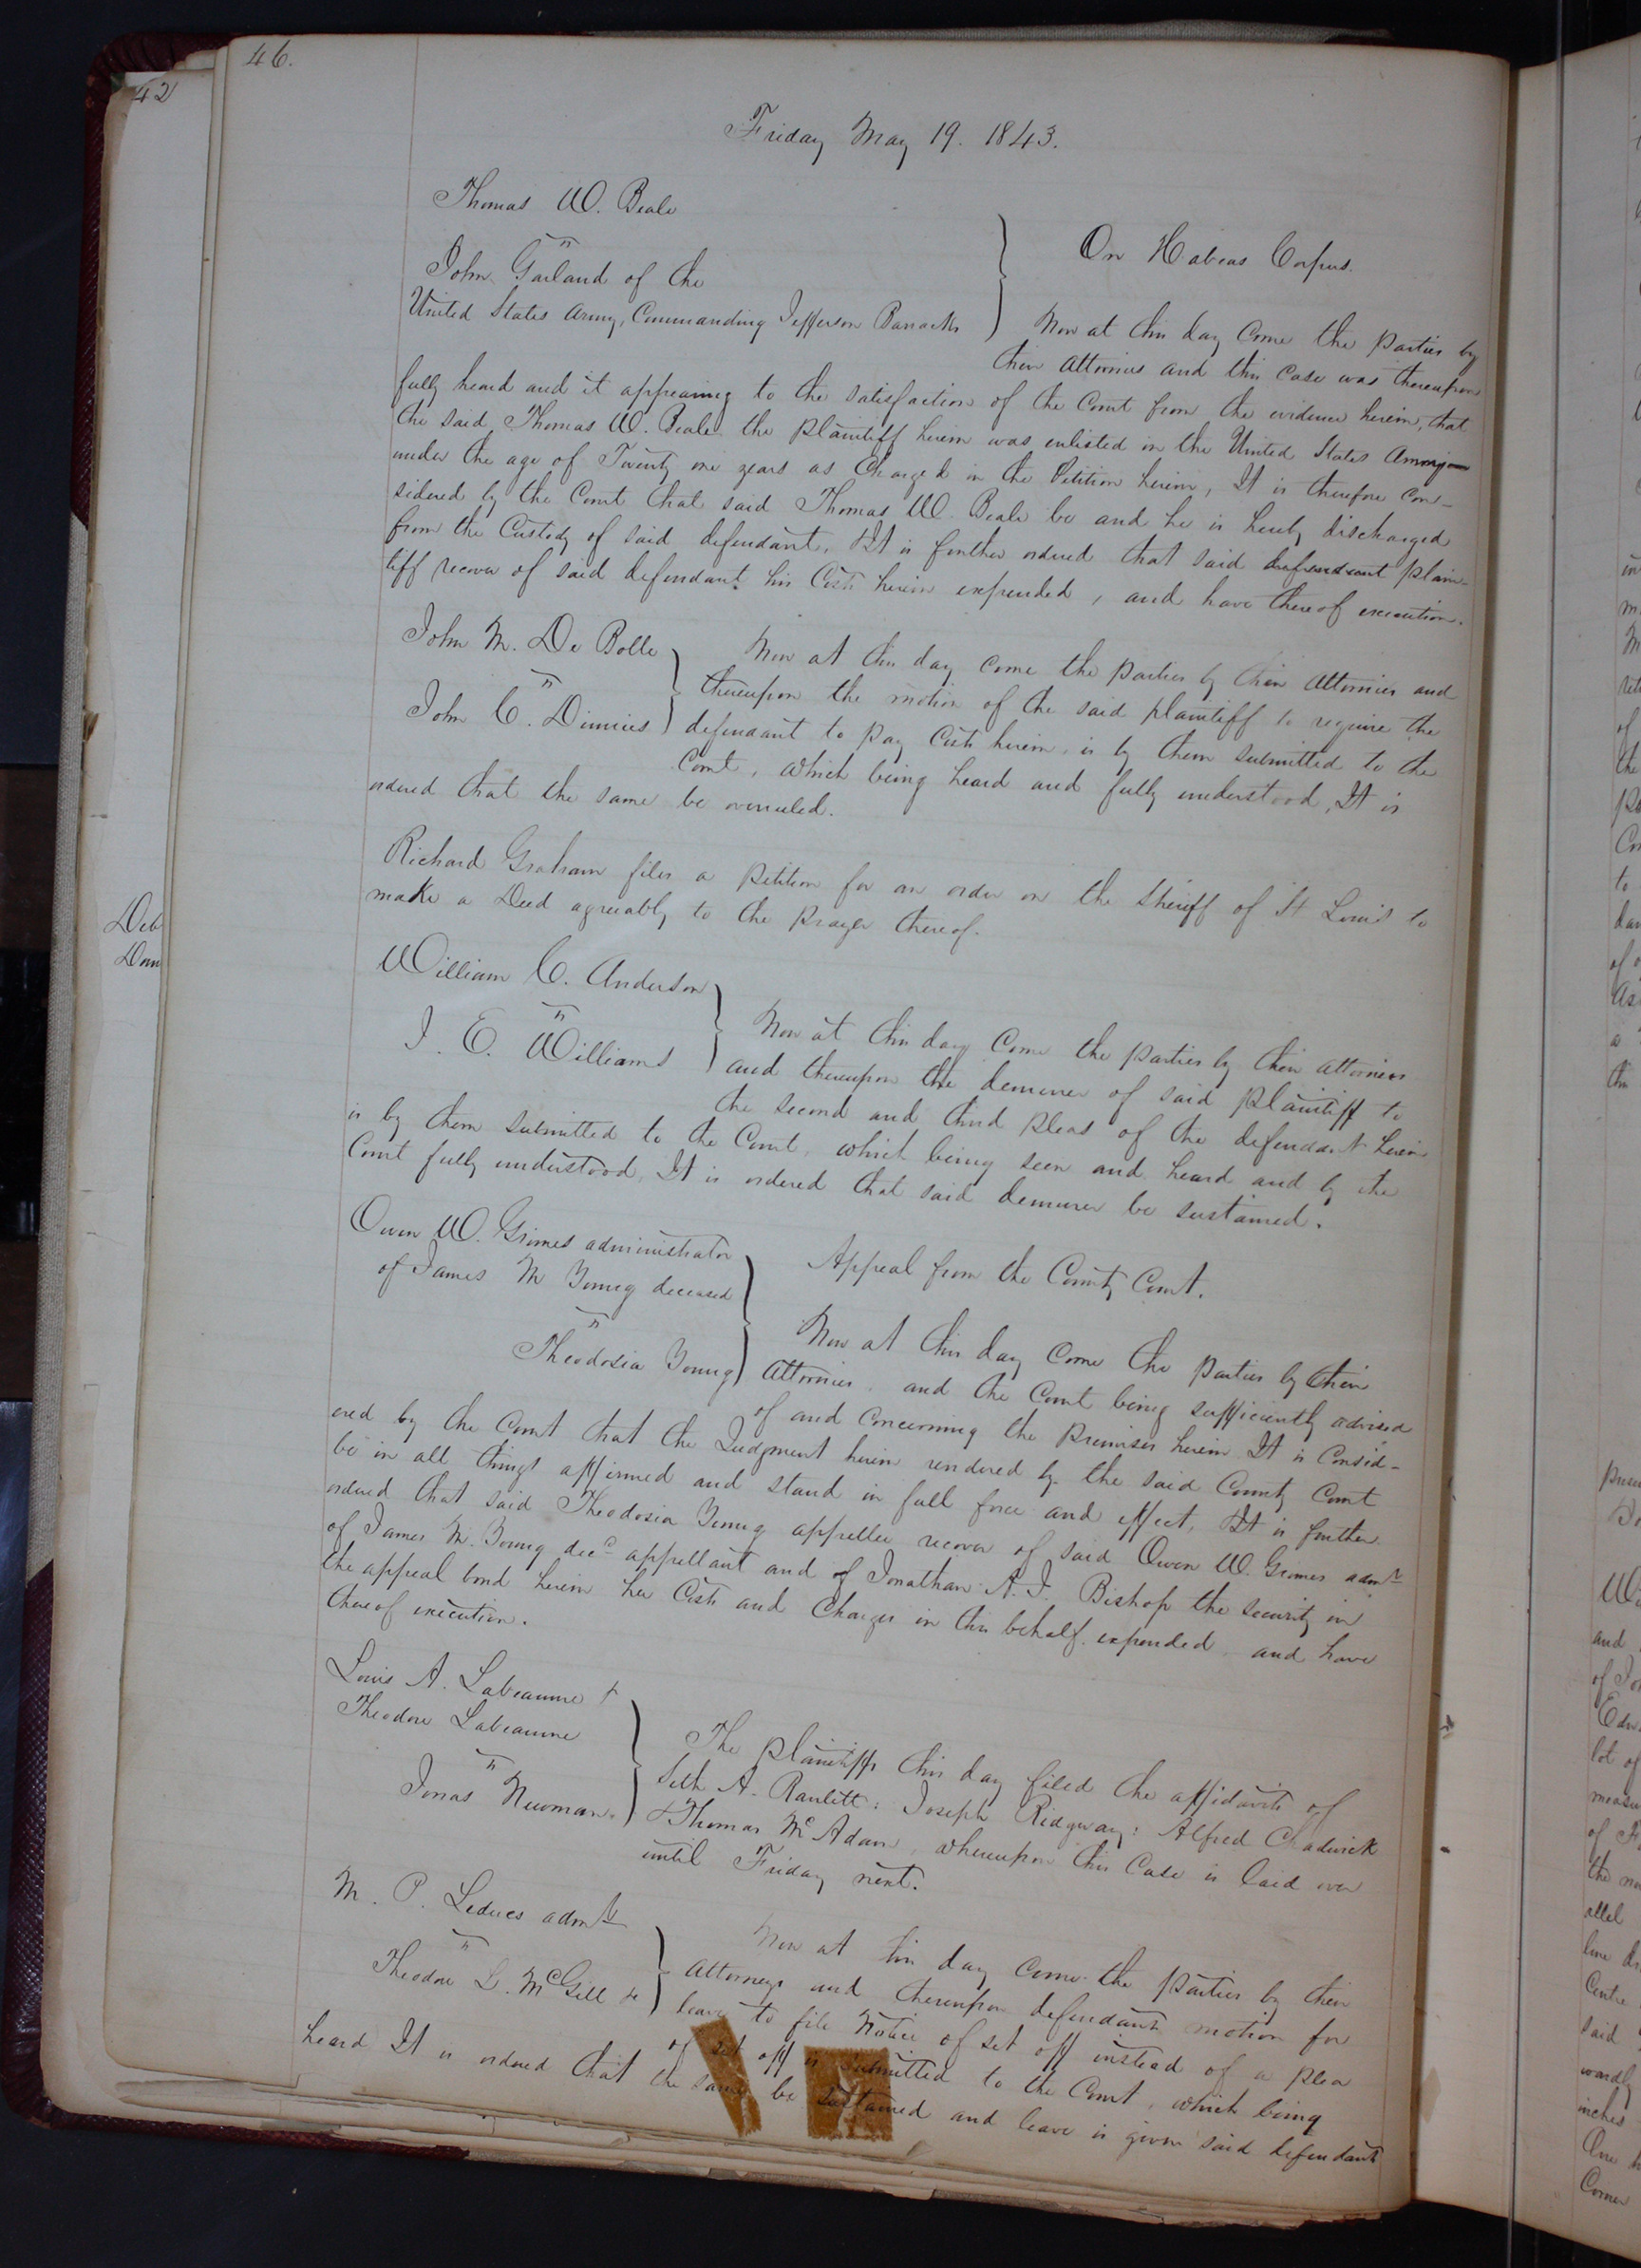 46.
42
Friday May 19. 1843.
Thomas W. Beale
vs
John Garland of the
United States Army, Commanding Jefferson Barracks
On Habeas Corpus.
Now at this day come the parties by
their attornies and this case was thereupon
fully heard and it appearing to the satisfaction of the Court from the evidence herein, that
the said Thomas W. Beale the plaintiff herein was enlisted in the United States Army
under the age of Twenty one years as Charged in the Petition herein, It is therefore con-
sidered by the Court that said Thomas W. Beale be and he is hereby discharged
from the Custody of said defendant, It is further ordered that said defendant plain-
tiff recover of said defendant his Costs herein expended, and have thereof execution.
John M. De Bolle
vs
John C. Dinnies
Now at this day come the parties by their attornies and
thereupon the motion of the said plaintiff to require the
defendant to pay Costs herein, is by them submitted to the
Court, which being heard and fully understood, It is
ordered that the same be overruled.
Richard Graham files a petition for an order on the Sheriff of St Louis to
make a Deed agreeably to the prayer thereof.
William C. Anderson
vs
J. E. Williams
Now at this day Come the parties by their attornies
and thereupon the demurer of said plaintiff to
the second and third pleas of the defendant herein
is by them submitted to the Court, which being seen and heard and by the
Court fully understood, It is ordered that said demurer be sustained.
Owen W. Grimes administrator
of James M Young deceased
vs
Theodosia Young
Appeal from the County Court.
Now at this day Come the parties by their
attornies, and the Court being sufficiently advised
of and concerning the premises herein It is Consid-
ered by the Court that the Judgment herein rendered by the said County Court
be in all things affirmed and stand in full force and effect, It is further
ordered that said Theodosia Young appellee recover of said Owen W. Grimes admr
of James M. Young decd appellant and of Jonathan A. J. Bishop the security in
the appeal bond herein her Costs and Charges in this behalf expended, and have
thereof execution.
Louis A. Labeaume &
Theodore Labeaume
vs
Jonas Newman.
The plaintiffs this day filed the affidavits of
Seth A. Ranlett: Joseph Ridgway: Alfred Chadwick
& Thomas McAdam, whereupon this Case is laid over
until Friday next.
M. P. Leducs admr
vs
Theodore L. McGill &c
Now at this day Come the parties by their
attorneys and thereupon defendants motion for
leave to file Notice of set off instead of a plea
of set off is submitted to the Court, which being
heard It is ordered that the same be sustained and leave is given said defendants